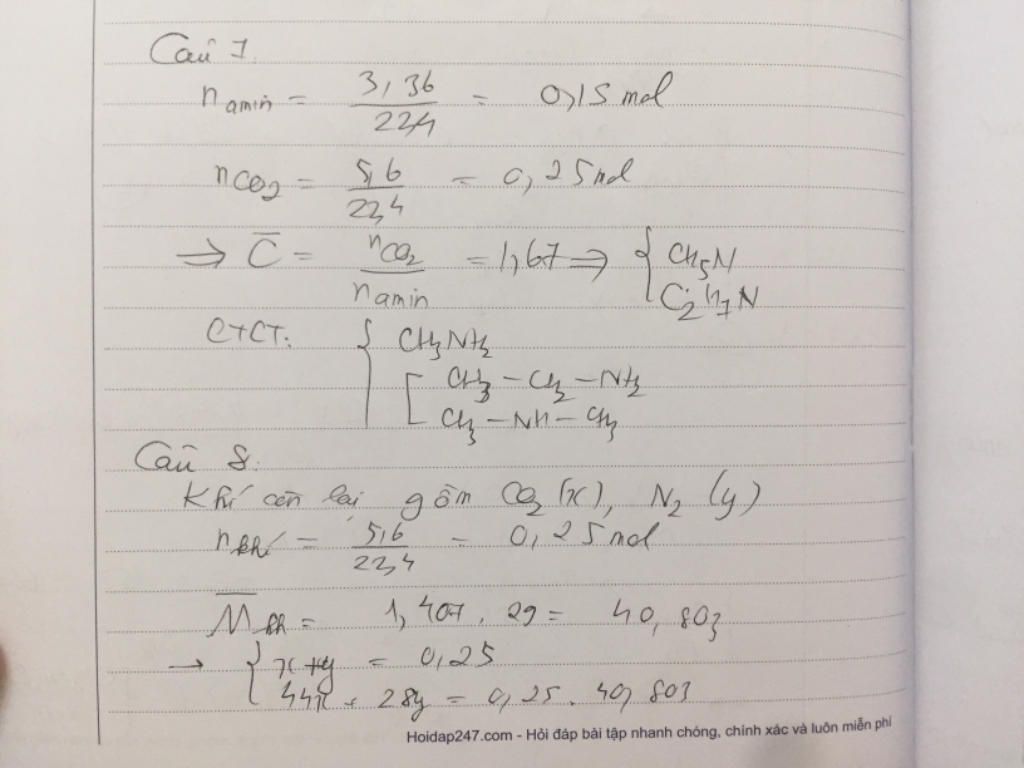 Câu 7.
n amin = 3,36 / 22,4 = 0,15 mol
nCO2 = 5,6 / 22,4 = 0,25 mol
⇒ C̄ = nCO2 / n amin = 1,67 ⇒ { CH5N
C2H7N
CTCT: { CH3NH2
[ CH3 – CH2 – NH2
CH3 – NH – CH3
Câu 8.
Khí còn lại gồm CO2 (x), N2 (y)
n khí = 5,6 / 22,4 = 0,25 mol
M̄ kh = 1,407 . 29 = 40,803
→ { x + y = 0,25
44x + 28y = 0,25 . 40,803
Hoidap247.com - Hỏi đáp bài tập nhanh chóng, chính xác và luôn miễn phí